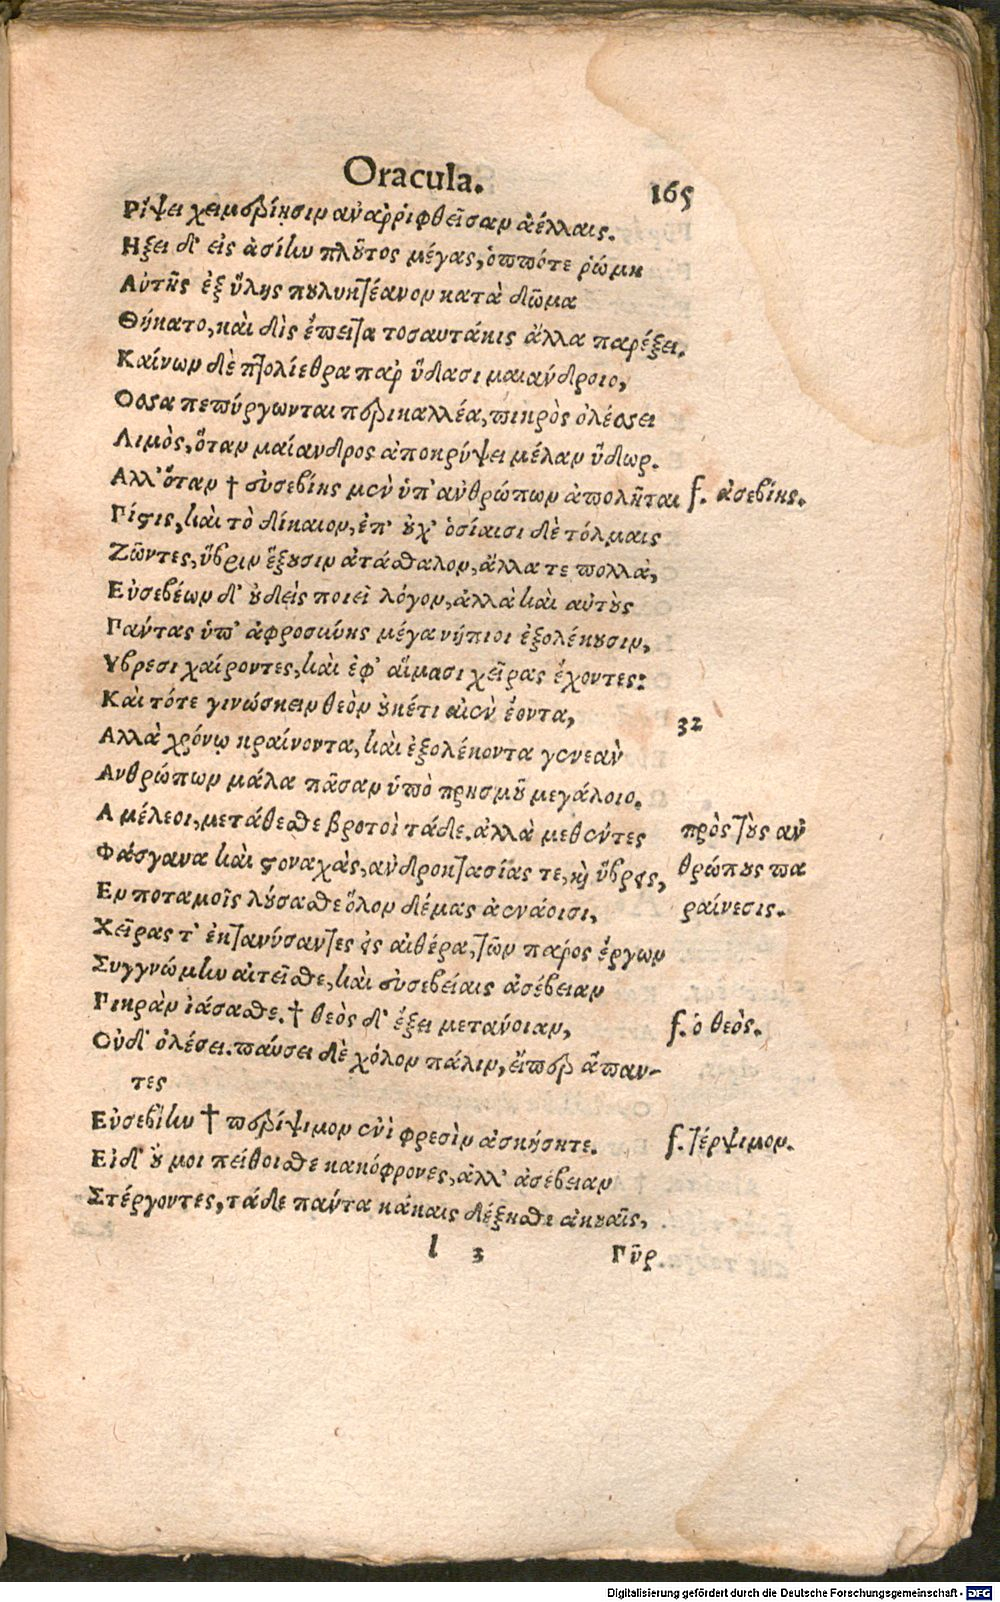 Oracula. 165
Ρίψει χειμερίησιν ἀναῤῥιφθεῖσαν ἀέλλαις.
Ηξει δ' εἰς ἀσίην πλοῦτος μέγας, ὁππότε ῥώμη
Αὐτῆς ἐξ ὕλης πουλυκτέανον κατὰ δῶμα
Θήκατο, καὶ δὶς ἔπειτα τοσαυτάκις ἄλλα παρέξει.
Καίνων δὲ πτολίεθρα παρ' ὕδασι μαιάνδροιο,
Οσσα πεπύργωνται περικαλλέα, πικρὸς ὀλέσσει
Λιμὸς, ὅταν μαίανδρος ἀποκρύψει μέλαν ὕδωρ.
Αλλ' ὅταν † εὐσεβίης μὲν ὑπ' ἀνθρώπων ἀπολῆται f. ἀσεβίης.
Πίστις, καὶ τὸ δίκαιον, ἐπ' οὐχ' ὁσίαισι δὲ τόλμαις
Ζῶντες, ὕβριν ἕξουσιν ἀτάσθαλον, ἄλλα τε πολλὰ,
Εὐσεβέων δ' οὐδεὶς ποιεῖ λόγον, ἀλλὰ καὶ αὐτοὺς
Παντας ὑπ' ἀφροσύνης μέγα νήπιοι ἐξολέκουσιν,
Υβρεσι χαίροντες, καὶ ἐφ' αἵμασι χεῖρας ἔχοντες:
Καὶ τότε γινώσκειν θεὸν οὐκέτι αἰὲν ἐόντα, 32
Αλλὰ χρόνῳ κραίνοντα, καὶ ἐξολέκοντα γενεὰν
Ανθρώπων μάλα πᾶσαν ὑπὸ πρησμοῦ μεγάλοιο.
Α μέλεοι, μετάθεσθε βροτοὶ τάδε. ἀλλὰ μεθέντες πρὸς τοὺς ἀν
Φάσγανα καὶ στοναχὰς, ἀνδροκτασίας τε, καὶ ὕβρεις, θρώπους πα
Εν ποταμοῖς λούσασθε ὅλον δέμας ἀενάοισι, ραίνεσις.
Χεῖρας τ' ἐκτανύσαντες ἐς αἰθέρα, τῶν πάρος ἔργων
Συγγνώμην αἰτεῖσθε, καὶ εὐσεβείαις ἀσέβειαν
Πικρὰν ἰάσασθε. † θεὸς δ' ἕξει μετάνοιαν, f. ὁ θεὸς.
Οὐδ' ὀλέσει. παύσει δὲ χόλον πάλιν, εἴπερ ἅπαν-
τες
Εὐσεβίην † περίψιμον ἐνὶ φρεσὶν ἀσκήσητε. f. τέρψιμον.
Εἰ δ' οὔ μοι πείθοισθε κακόφρονες, ἀλλ' ἀσέβειαν
Στέργοντες, τάδε πάντα κάκαις δέξησθε ἀκουαῖς,
l 3 Πῦρ
Digitalisierung gefördert durch die Deutsche Forschungsgemeinschaft - DFG